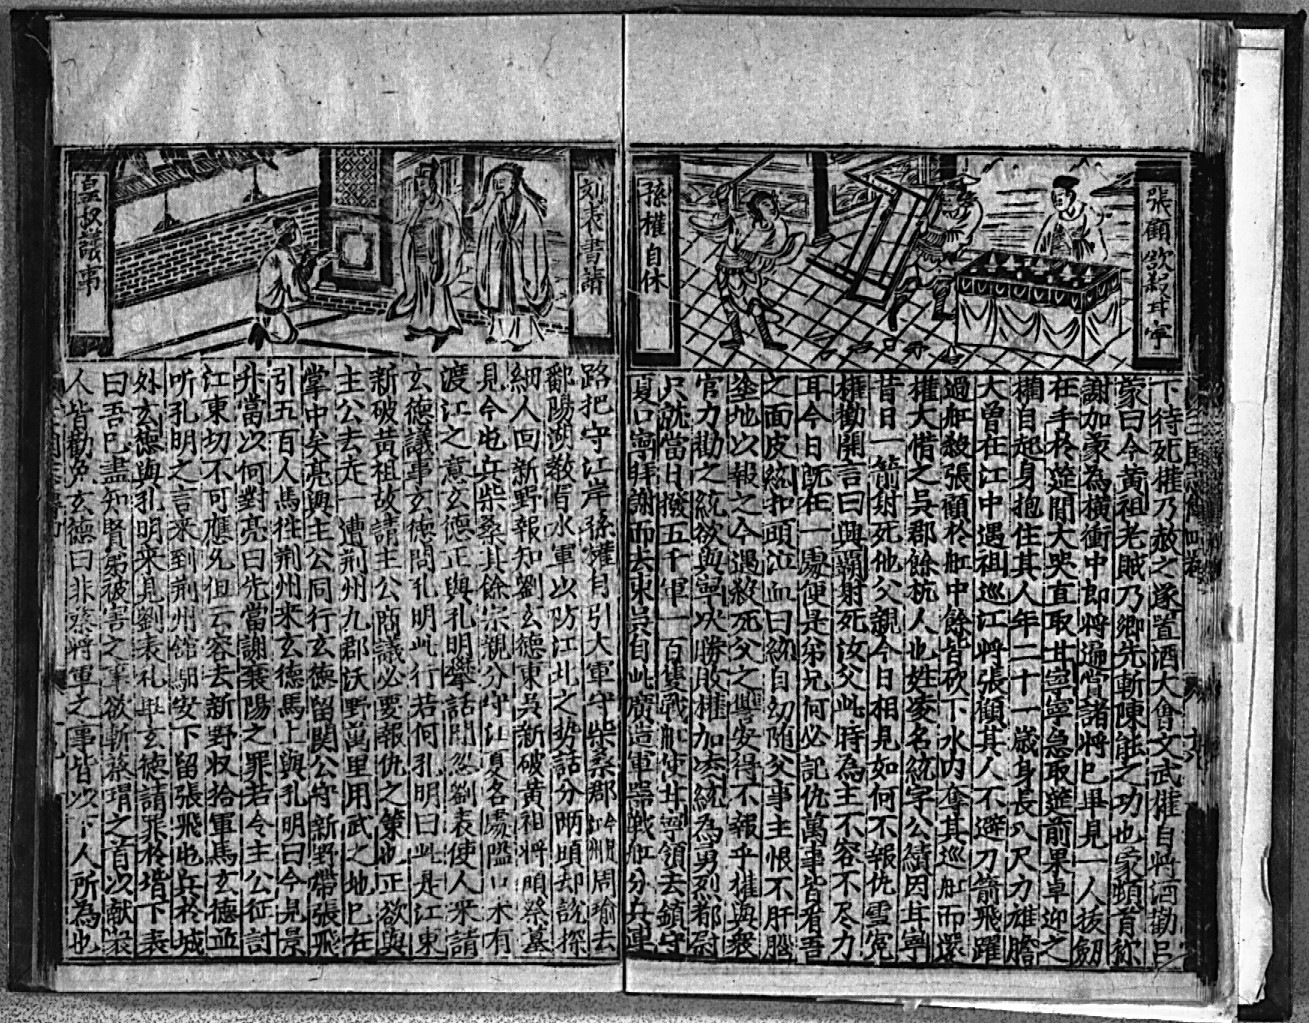 張顧欲殺甘寧
孫權自休
下待死權乃赦之遂置酒大會文武權自將酒勸呂
蒙曰今黃祖老賊乃卿先斬陳能之功也蒙頓首称
謝加蒙為橫衝中郎將遍賞諸將已畢見一人拔劒
在手於筵間大哭直取甘寧寧急取筵前果卓迎之
權自起身抱住其人年二十一歳身長八尺刀雄膽
大曾在江中遇祖巡江將張顧其人不避刀箭飛躍
過舡殺張顧於舡中餘皆砍下水内奪其巡舡而還
權大惜之吳郡餘杭人也姓凌名統字公績因甘寧
昔日一箭射死他父親今日相見如何不報仇雪冤
權勸開言曰興霸射死汝父此時為主不容不尽力
耳今日既在一處便是弟兄何必記仇萬事皆看吾
之面皮統扣頭泣血曰統自幼随父事主恨不肝腦
塗地以報之今遇殺死父之讐安得不報乎權與衆
官力勸之統欲與寧决勝敗權加凌統為勇烈都尉
只就當日撥五千軍一百隻戰舡使甘寧領去鎮守
夏口寧拜謝而去東吳自此廣造軍噐戰舡分兵連
刘表書請
皇叔議事
路把守江岸孫權自引大軍守柴桑郡周瑜去
鄱陽湖教習水軍以防江北之勢話分兩頭却說探
細人回新野報知劉玄德東吳新破黃祖將頭祭墓
見今屯兵柴桑其餘宗親分守江夏各處隘口未有
渡江之意玄德正與孔明攀話間忽劉表使人來請
玄德議事玄德問孔明此行若何孔明曰此是江東
新破黃祖故請主公商議必要報仇之策也正欲與
主公去走一遭荊州九郡沃野萬里用武之地已在
掌中矣亮與主公同行玄德留関公守新野帶張飛
引五百人馬往荊州來玄德馬上與孔明曰今見景
升當以何對亮曰先當謝襄陽之罪若令主公征討
江東切不可應允但云容去新野收拾軍馬玄德並
听孔明之言来到荊州館駅安下留張飛屯兵於城
外玄德與孔明來見劉表礼畢玄德請罪於堦下表
曰吾已盡知賢弟被害之事欲斬蔡瑁之首以献衆
人皆勸免玄德曰非蔡將軍之事皆以下人所為也